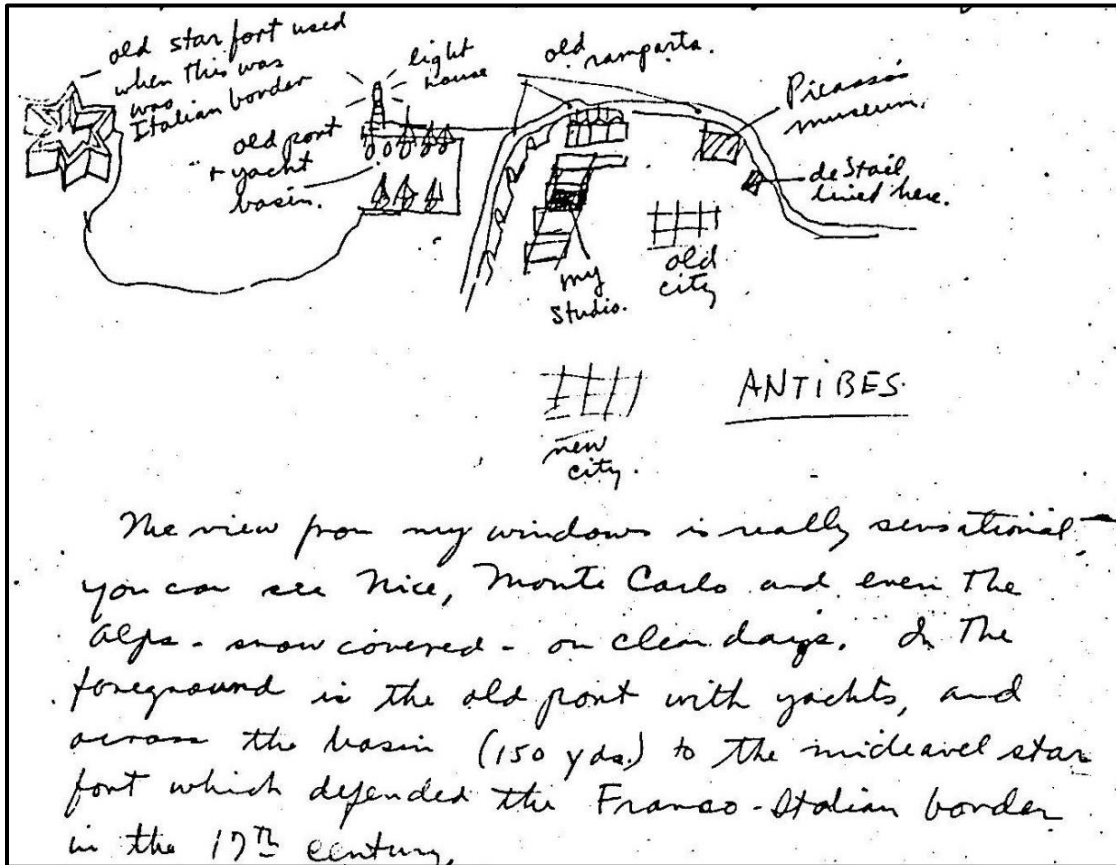 old star fort used
when this was
was
Italian border
light
house
old port
+ yacht
basin.
old
ramparts.
Picasso's
museum.
deStaël
lived here.
my
studio.
old
city
new
city.
ANTIBES
The view from my windows is really sensational -
you can see Nice, Monte Carlo and even the
Alps - snow covered - on clear days. In the
foreground is the old port with yachts, and
across the basin (150 yds.) to the mideavel star
fort which defended the Franco-Italian border
in the 17th century.